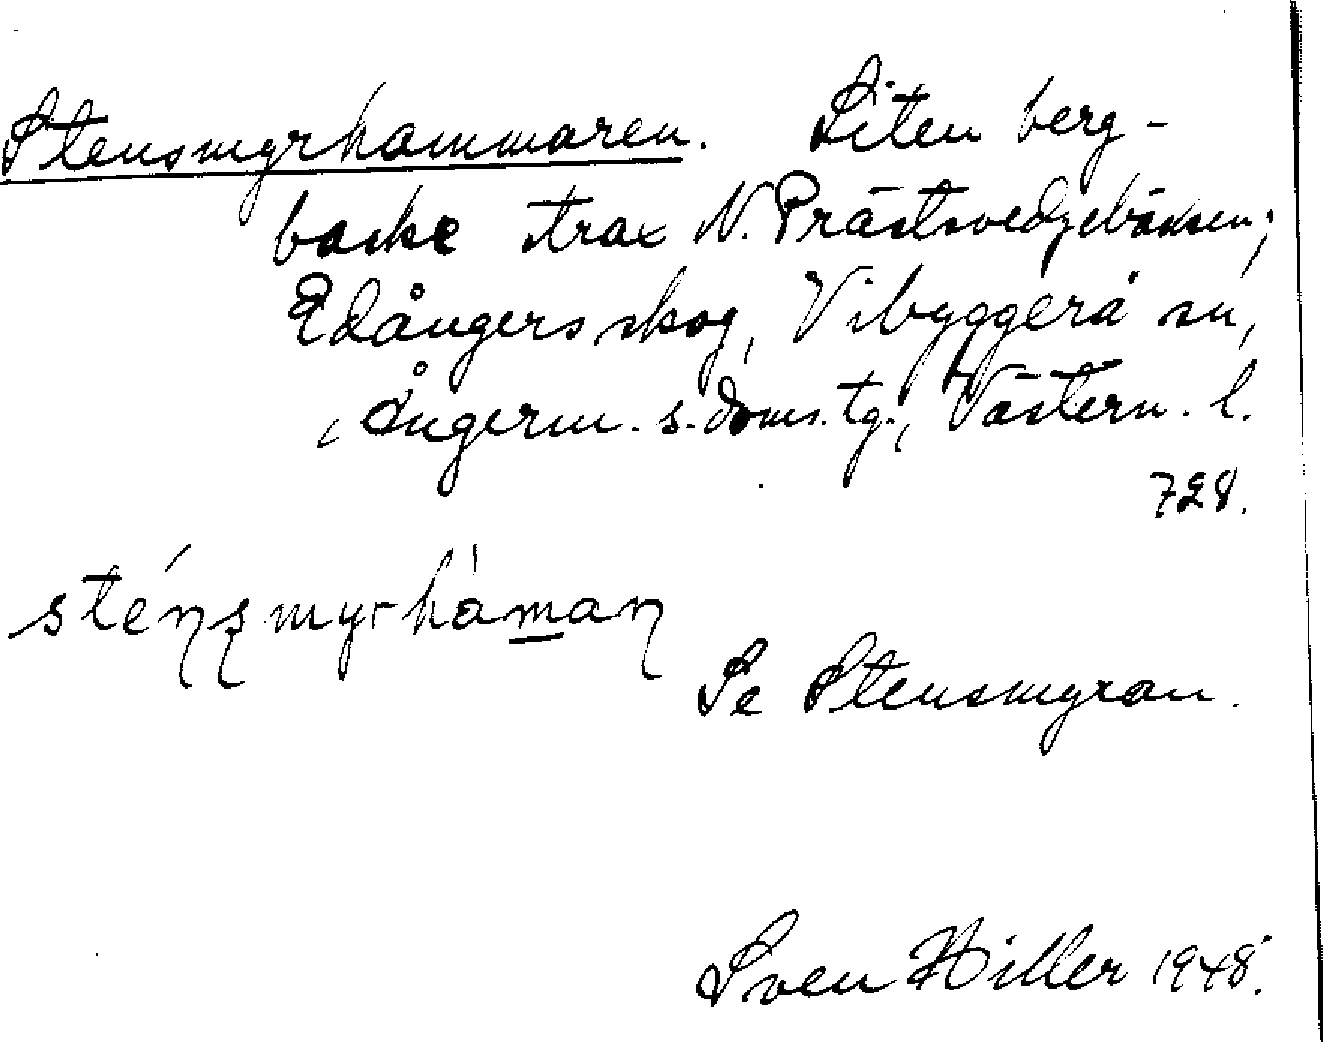 Stensmyrhammaren. Liten berg-
backe strax N. Prästsvedjebäcken;
Edångers skog, Vibyggerå sn,
Ångerm. s. doms. tg., Västern. l.
728.
sténsmyrhàman
Se Stensmyran.
Sven Hiller 1948.